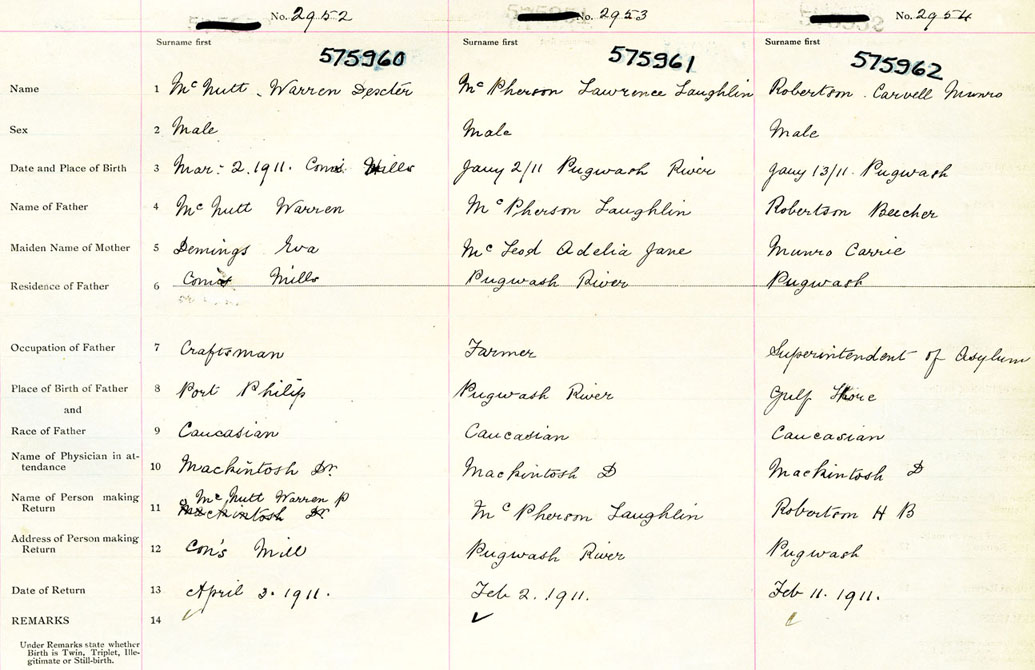 No. 2952 No. 2953 No. 2954
Surname first Surname first Surname first
575960 575961 575962
Name 1 McNutt Warren Dexter McPherson Lawrence Laughlin Robertson Carvell Munro
Sex 2 Male Male Male
Date and Place of Birth 3 Mar. 2. 1911. Mills Jany 2/11 Pugwash River Jany 13/11 Pugwash
Name of Father 4 McNutt Warren McPherson Laughlin Robertson Beecher
Maiden Name of Mother 5 Demings Eva McLeod Adelia Jane Munro Carrie
Residence of Father 6 Mills Pugwash River Pugwash
Occupation of Father 7 Craftsman Farmer Superintendent of Asylum
Place of Birth of Father 8 Port Philip Pugwash River Gulf Shore
and
Race of Father 9 Caucasian Caucasian Caucasian
Name of Physician in at-
tendance 10 Mackintosh Dr. Mackintosh D Mackintosh D
Name of Person making McNutt Warren P
Return 11 Mackintosh Dr McPherson Laughlin Robertson H B
Address of Person making
Return 12 Con's Mill Pugwash River Pugwash
Date of Return 13 April 3. 1911. Feb 2. 1911. Feb 11. 1911.
REMARKS 14
Under Remarks state whether
Birth is Twin, Triplet, Ille-
gitimate or Still-birth.